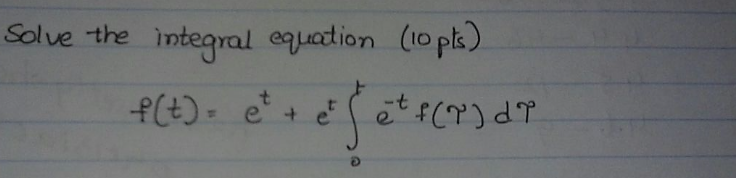 Solve the integral equation (10 pts)
f(t) = e^t + e^t ∫_0^t e^{-t} f(τ) dτ